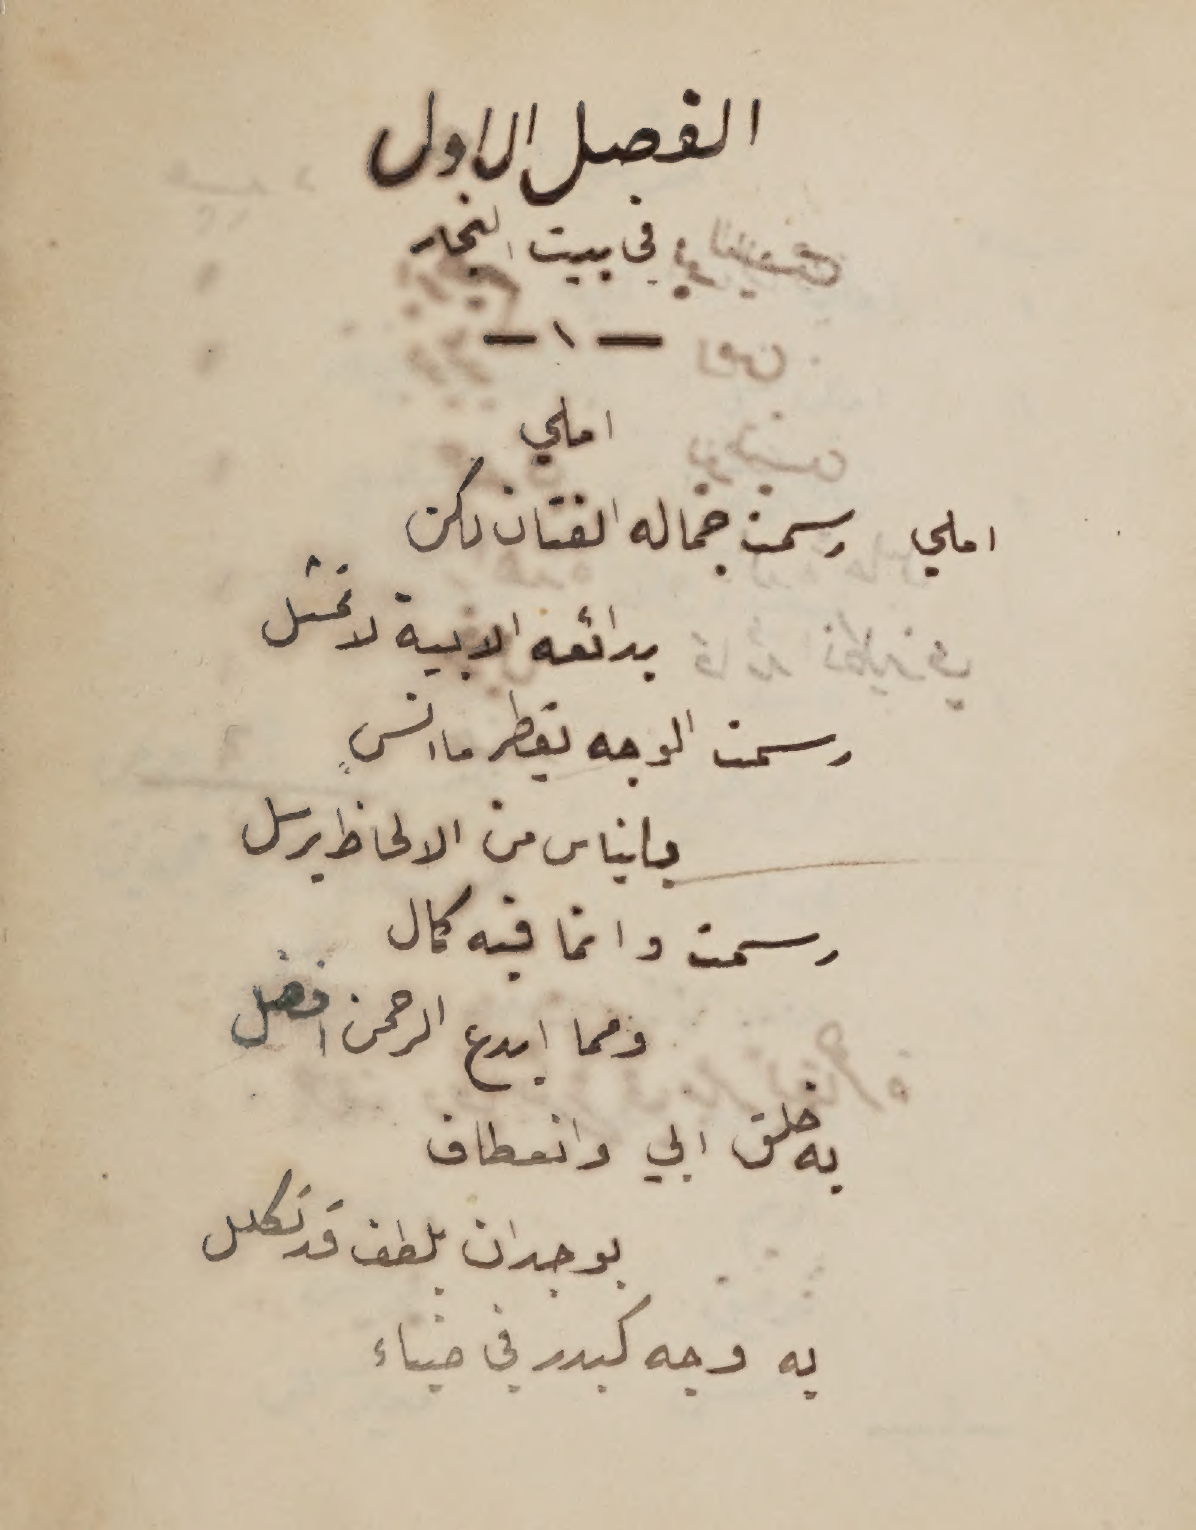 الفصل الاول
في بيت النجار
— ١ —
املي
املي رسمت جماله الفتان لكن
بدائعه الابية لا تمثل
رسمت الوجه يقطر ما انس
بايناس من الالحاظ يرسل
رسمت وانما فيه كمال
ومما ابدع الرحمن افضل
به خلق ابي وانعطاف
بوجدان بلطف قد تكلل
به وجه كبدر في ضياء